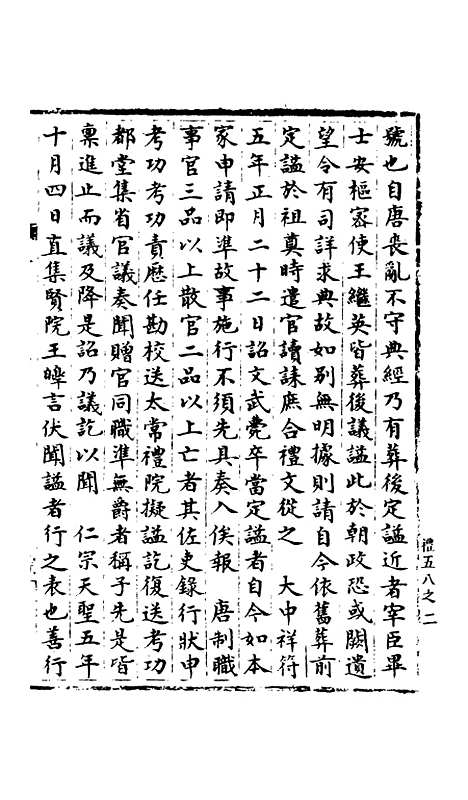 號也自唐喪亂不守典經乃有葬後定謚近者宰臣畢
士安樞密使王繼英皆葬後議謚此於朝政恐或闕遺
望令有司詳求典故如別無明據則請自今依舊葬前
定謚於祖奠時遣官讀誄庶合禮文從之　大中祥符
五年正月二十二日詔文武薨卒當定謚者自今如本
家申請即準故事施行不須先具奏入俟報　唐制職
事官三品以上散官二品以上亡者其佐吏錄行狀申
考功考功責歷任勘校送太常禮院擬謚訖復送考功
都堂集省官議奏聞贈官同職準無爵者稱子先是皆
稟進止而議及降是詔乃議訖以聞　仁宗天聖五年
十月四日直集賢院王皞言伏聞謚者行之表也善行
禮五八之二